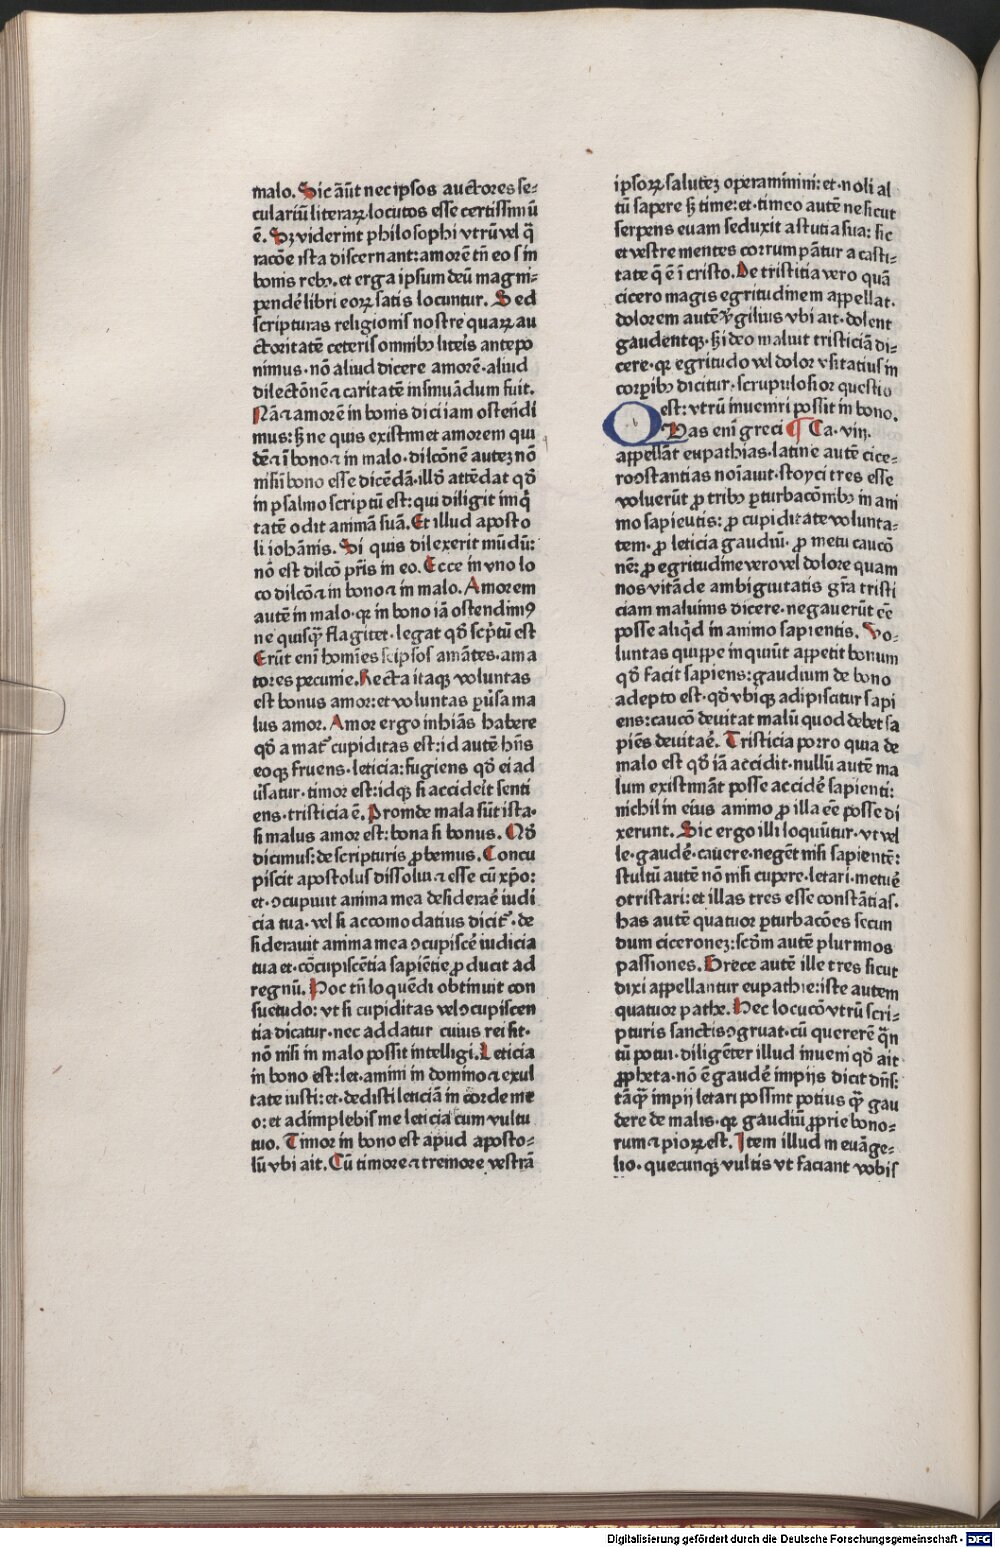 malo. Sic aūt nec ipsos auctores se⸗
culariū literaꝝ locutos esse certissimū
ē. Sꝫ viderint philosophi vtrū vel q̄
racōe ista discernant: amorē tn̄ eos in
bonis rebꝰ. et erga ipsum deū magni⸗
pendē libri eoꝝ satis locuntur. Sed
scripturas religionis nostre quaꝝ au
ctoritatē ceteris omnibꝰ literis antepo
nimus · nō aliud dicere amorē · aliud
dilectōnē ⁊ caritatē insinuādum fuit.
Nā ⁊ amorē in bonis dici iam ostendi
mus: sꝫ ne quis existimet amorem qui
dē ⁊ ī bono ⁊ in malo · dilcōnē autez nō
nisi ī bono esse dicēdā · illð attēdat qð
in psalmo scriptū est: qui diligit iniq̇
tatē odit animā suā. Et illud aposto
li iohānis. Si quis dilexerit mūdū:
nō est dilcō pr̄is in eo. Ecce in vno lo
co dilcō ⁊ in bono ⁊ in malo. Amorem
autē in malo · qꝛ in bono iā ostendimꝰ
ne quisqꝫ flagitet · legat qð scp̄tū est
Erūt eni homīes seipsos amātes · ama
tores pecunie. Recta itaqꝫ voluntas
est bonus amor: et voluntas puersa ma
lus amor. Amor ergo inhiās habere
qð amat᷑ cupiditas est: id autē hn̄s
eoqꝫ fruens · leticia: fugiens qð ei ad
ūsatur · timor est: idqꝫ si acciderit senti
ens · tristicia ē. Proinde mala sūt ista ·
si malus amor est: bona si bonus. Qð
dicimus: de scripturis ꝓbemus. Concu
piscit apostolus dissolui ⁊ esse cū xp̄o:
et · ↄcupiuit anima mea desiderare iudi
cia tua · vel si accomodatius dicit᷑ · de
siderauit anima mea ↄcupiscē iudicia
tua et · cōcupiscētia sapiētie ꝓducit ad
regnū. Hoc tn̄ loquēdi obtinuit con
suetudo: vt si cupiditas vel ↄcupiscen
tia dicatur · nec addatur cuius rei sit ·
nō nisi in malo possit intelligi. Leticia
in bono est: letamini in domino ⁊ exul
tate iusti: et · dedisti leticiā in corde me
o: et adimplebis me leticia cum vultu
tuo. Timor in bono est apud aposto⸗
lū vbi ait. Cū timore ⁊ tremore vestrā
ipsoꝝ salutez operamini: et · noli al
tū sapere sꝫ time: et · timeo autē ne sicut
serpens euam seduxit astutia sua: sic
et vestre mentes corrumpātur a casti⸗
tate q̄ ē ī cristo. De tristitia vero quā
cicero magis egritudinem appellat.
dolorem autē v̄gilius vbi ait · dolent
gaudentqꝫ · sꝫ ideo malui tristiciā di⸗
cere · qꝛ egritudo vel dolor vsitatius in
corpibꝰ dicitur · scrupulosior questio
est: vtrū inueniri possit in bono.
Quas eni greci ¶ Ca. viij.
appellāt eupathias · latine autē cice⸗
ro ↄstantias noiauit · stoyci tres esse
voluerūt ꝓ tribꝰ ꝑturbacōnibꝰ in ani
mo sapientis: ꝓ cupiditate volunta⸗
tem · ꝓ leticia gaudiū · ꝓ metu caucō
nē: ꝓ egritudine vero vel dolore quam
nos vitāde ambiguitatis gr̄a tristi
ciam maluimus dicere · negauerūt eē
posse aliqd in animo sapientis. Vo⸗
luntas quippe inquiūt appetit bonum
qð facit sapiens: gaudium de bono
adepto est · qð vbiqꝫ adipiscitur sapi
ens: caucō deuitat malū quod debet sa
piēs deuitaē. Tristicia porro quia de
malo est qð iā accidit · nullū autē ma
lum existimāt posse accidē sapienti:
nichil in eius animo ꝓ illa eē posse di
xerunt. Sic ergo illi loquūtur · vt vel
le · gaudē · cauere · negēt nisi sapientē:
stultū autē nō nisi cupere · letari · metuē
ↄtristari: et illas tres esse constātias ·
has autē quatuor ꝑturbacōes secun
dum ciceronez: scðm autē plurimos
passiones. Grece autē ille tres sicut
dixi appellantur eupathie: iste autem
quatuor pathe. Hec locucō vtrū scri⸗
pturis sanctis ↄgruat · cū quererē q̄n
tū potui · diligēter illud inueni qð ait
ꝓpheta · nō ē gaudē impijs dicit dn̄s:
tāqꝫ impij letari possint potius qꝫ gau
dere de malis · qꝛ gaudiū ꝓprie bono⸗
rum ⁊ pioꝝ est. Item illud in euāge⸗
lio · quecunqꝫ vultis vt faciant vobis
Digitalisierung gefördert durch die Deutsche Forschungsgemeinschaft · DFG